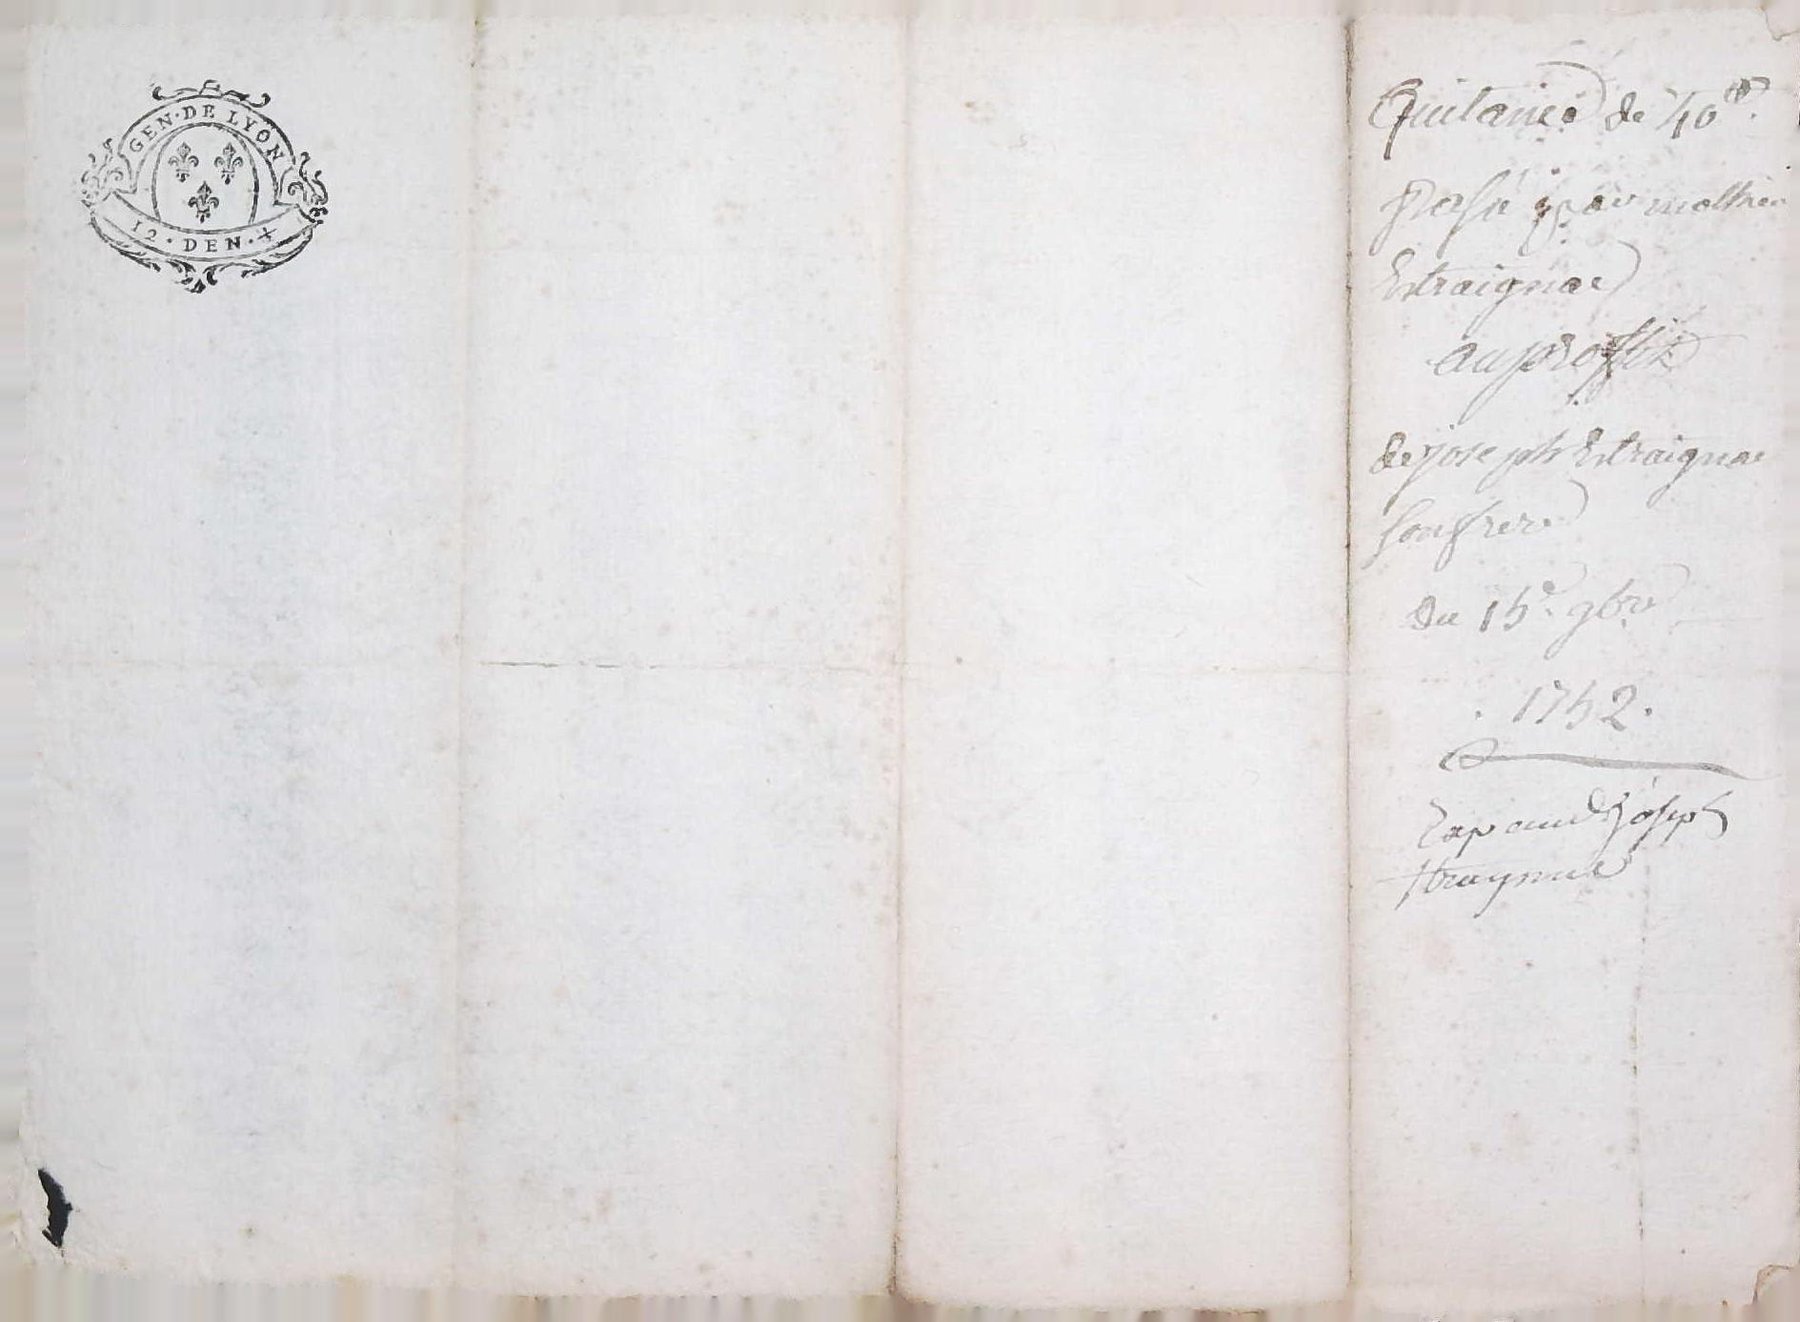 GEN·DE LYON
12·DEN·
Quitance de 40tt.
passé par mathieu
Estraignac
au proffit
de joseph Estraignac
son frere
du 15e. 9bre
. 1752 .
joseph